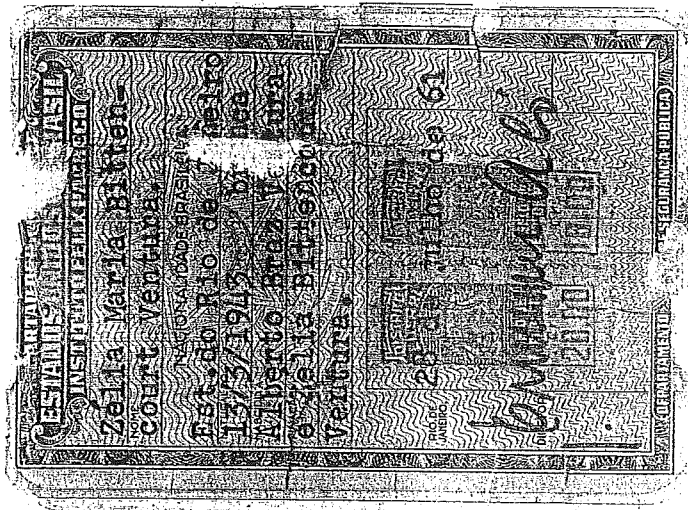 ESTADOS UNIDOS BRASIL
INSTITUTO FELIX PACHECO
Zelia Maria Bitten-
court Ventura.
NOME
NACIONALIDADE BRASILEIRA
Est.do Rio de Janeiro
13/3/1943 branca
Alberto Braz Ventura
e Zelia Bittencourt
Ventura.
RIO DE JANEIRO, 28 de Junho de 61
DEPARTAMENTO SEGURANÇA PÚBLICA